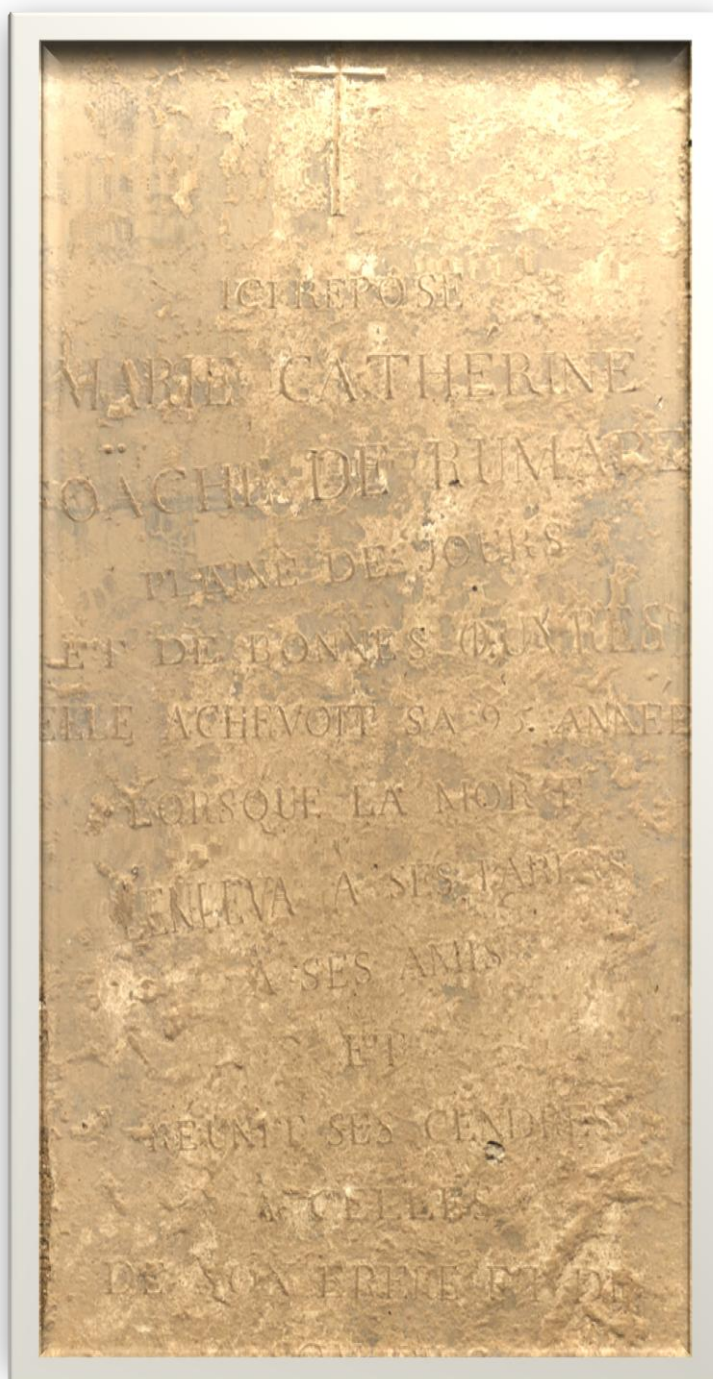 ICI REPOSE
MARIE CATHERINE
OÄCHE DE RUMARE
PLAINE DE JOURS
ET DE BONNES ŒUVRES
ELLE ACHEVOIT SA 95. ANNEE
LORSQUE LA MORT
L'ENLEVA A SES PARENS
A SES AMIS
ET
REUNIT SES CENDRES
A CELLES
DE SON FRERE ET DE